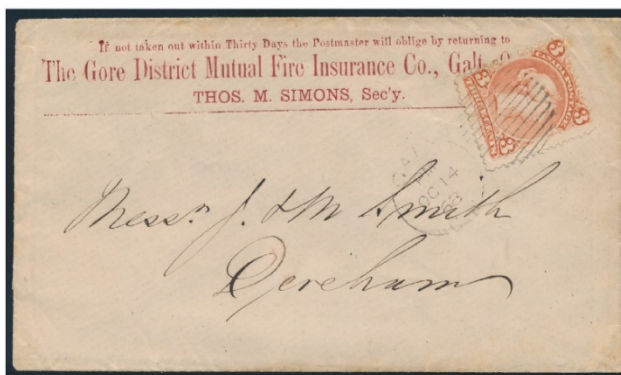 If not taken out within Thirty Days the Postmaster will oblige by returning to
The Gore District Mutual Fire Insurance Co., Galt, O
THOS. M. SIMONS, Sec'y.
3 3
3 3
GAL
OC 14
Messrs J. & M Smith
Dereham